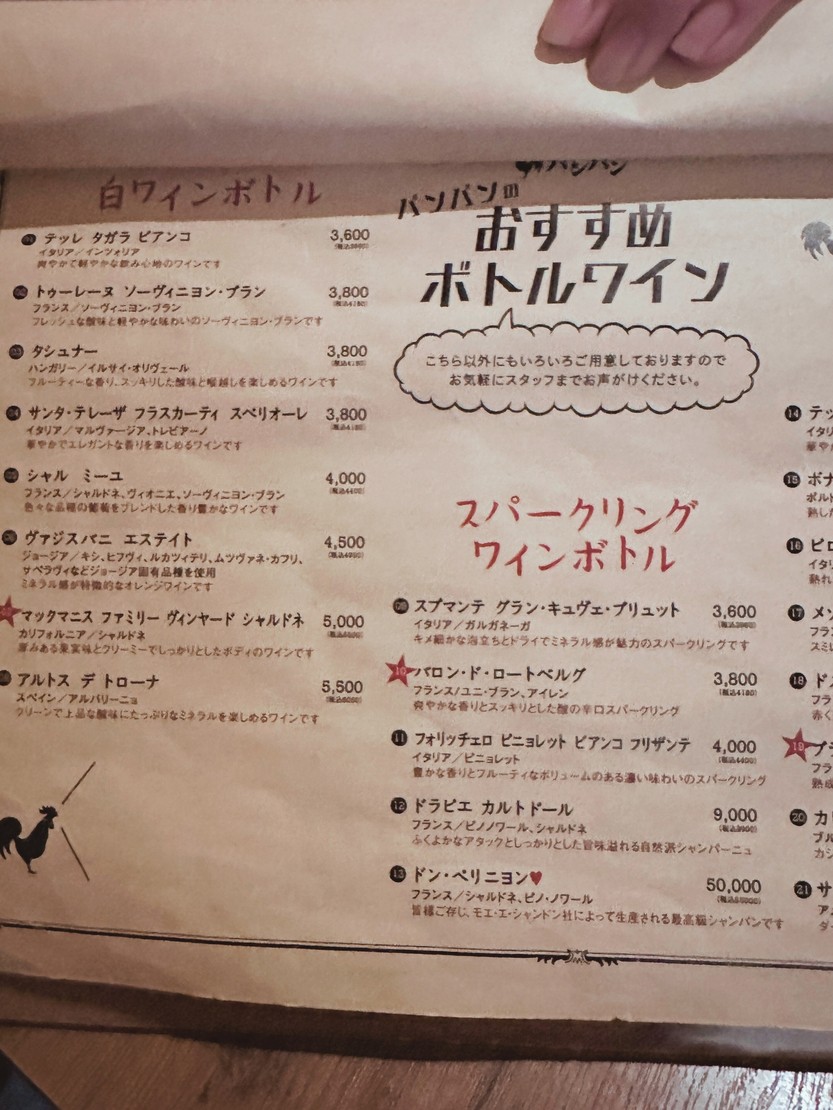 白ワインボトル
01 テッレ タガラ ビアンコ 3,600
イタリア／インツォリア
爽やかで軽やかな飲み心地のワインです
02 トゥーレーヌ ソーヴィニヨン・ブラン 3,800
フランス／ソーヴィニヨン・ブラン (税込4180)
フレッシュな酸味と軽やかな味わいのソーヴィニヨン・ブランです
03 タシュナー 3,800
ハンガリー／イルサイ・オリヴェール (税込4180)
フルーティーな香り、スッキリした酸味と喉越しを楽しめるワインです
04 サンタ・テレーザ フラスカーティ スペリオーレ 3,800
イタリア／マルヴァージア、トレビアーノ (税込4180)
華やかでエレガントな香りを楽しめるワインです
05 シャル ミーユ 4,000
フランス／シャルドネ、ヴィオニエ、ソーヴィニヨン・ブラン (税込4400)
色々な品種の葡萄をブレンドした香り豊かなワインです
06 ヴァジスバニ エステイト 4,500
ジョージア／キシ、ヒフヴィ、ルカツィテリ、ムツヴァネ・カフリ、 (税込4950)
サペラヴィなどジョージア固有品種を使用
ミネラル感が特徴的なオレンジワインです
マックマニス ファミリー ヴィンヤード シャルドネ 5,000
カリフォルニア／シャルドネ
厚みある果実味とクリーミーでしっかりとしたボディのワインです
アルトス デ トローナ 5,500
スペイン／アルバリーニョ
クリーンで上品な酸味にたっぷりなミネラルを楽しめるワインです
バンバン
バンバンの
おすすめ
ボトルワイン
こちら以外にもいろいろご用意しておりますので
お気軽にスタッフまでお声がけください。
スパークリング
ワインボトル
09 スプマンテ グラン・キュヴェ・ブリュット 3,600
イタリア／ガルガネーガ (税込3960)
キメ細かな泡立ちとドライでミネラル感が魅力のスパークリングです
10 バロン・ド・ロートベルグ 3,800
フランス/ユニ・ブラン、アイレン (税込4180)
爽やかな香りとスッキリとした酸の辛口スパークリング
11 フォリッチェロ ピニョレット ビアンコ フリザンテ 4,000
イタリア／ピニョレット (税込4400)
豊かな香りとフルーティなボリュームのある濃い味わいのスパークリング
12 ドラピエ カルトドール 9,000
フランス／ピノノワール、シャルドネ (税込9900)
ふくよかなアタックとしっかりとした旨味溢れる自然派シャンパーニュ
13 ドン・ペリニヨン♥ 50,000
フランス／シャルドネ、ピノ・ノワール (税込55000)
皆様ご存じ、モエ・エ・シャンドン社によって生産される最高級シャンパンです
14 テッ
イタリ
華や
15 ボナ
ボルド
熟した
16 ピロ
イタリ
熟れ
17 メゾ
フラン
スミレ
18 ドメ
フラ
赤く
19
フラ
熟成
20 カ
ブル
カシ
21 サ
アル
ダ